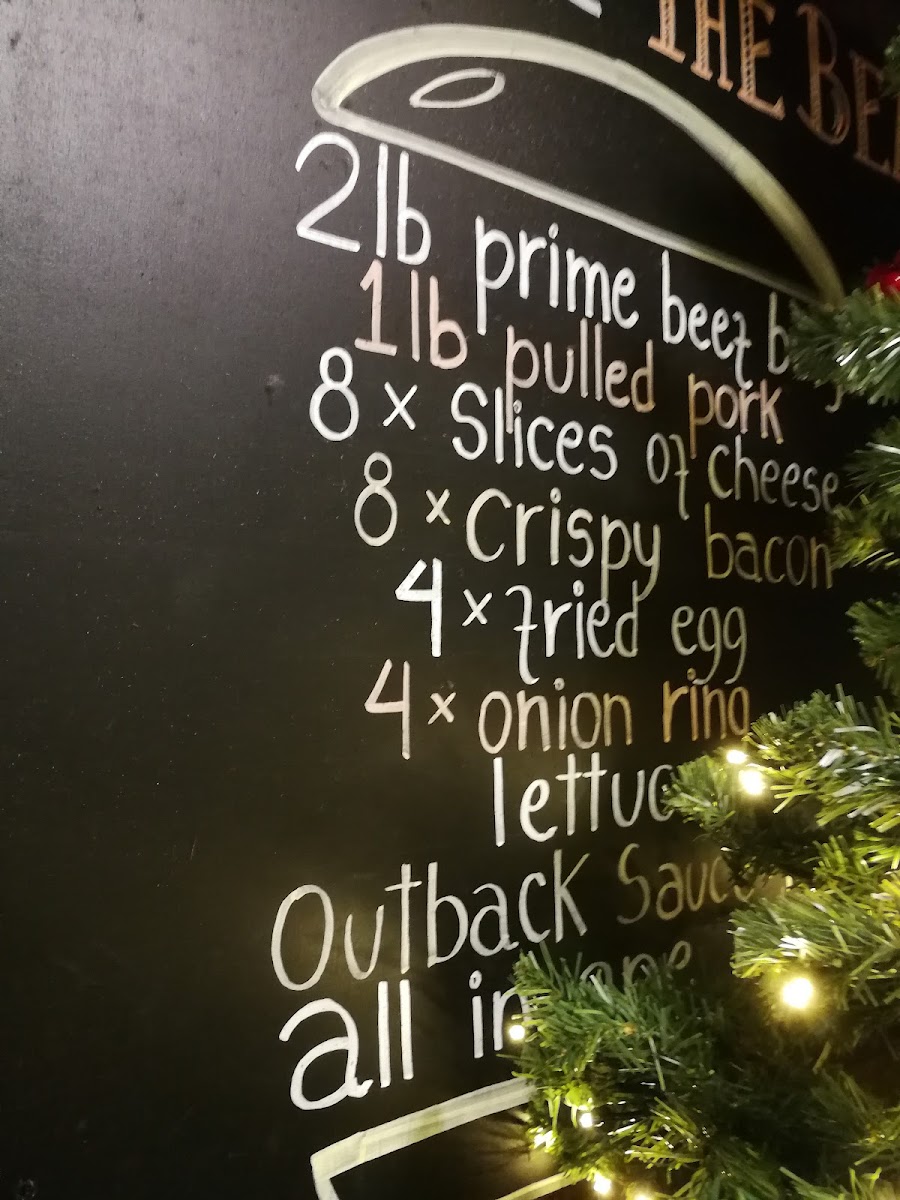 THE
2lb prime beef
1lb pulled pork
8 x Slices of cheese
8 x Crispy bacon
4 x fried egg
4 x onion ring
Outback Sauce
all in